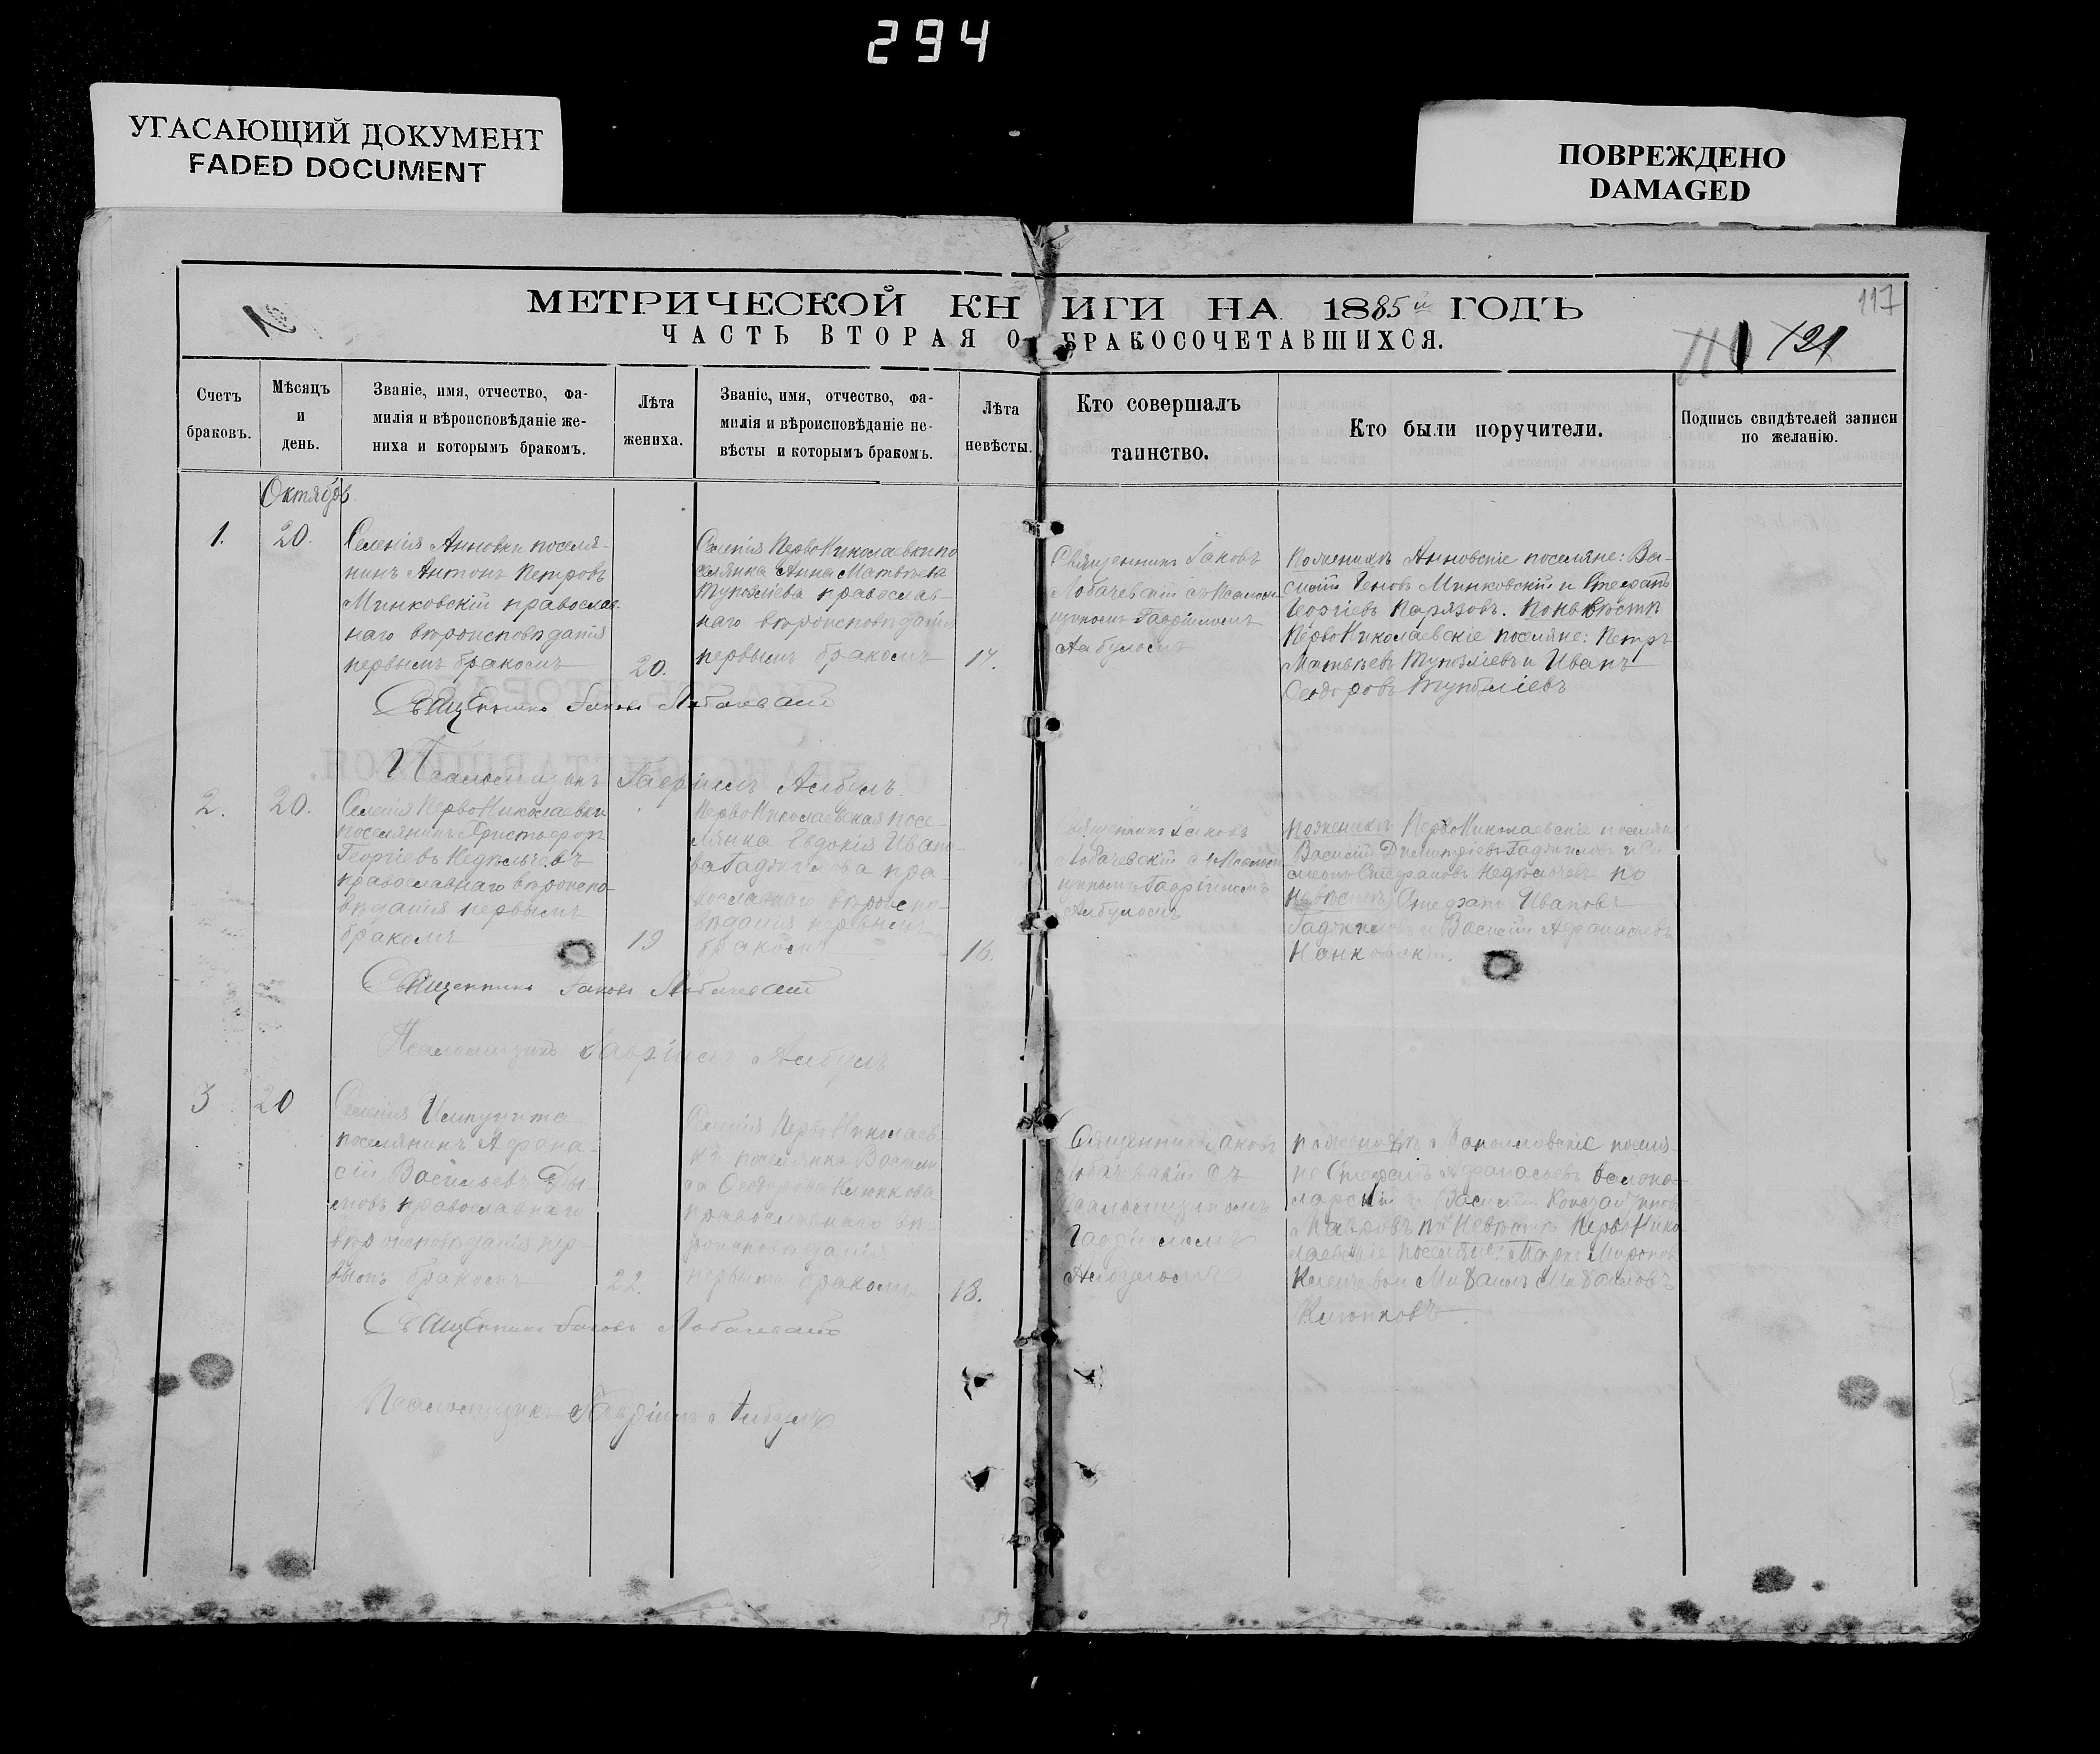 294
УГАСАЮЩИЙ ДОКУМЕНТ
FADED DOCUMENT
ПОВРЕЖДЕНО
DAMAGED
117
МЕТРИЧЕСКОЙ КНИГИ НА 1885й ГОДЪ
ЧАСТЬ ВТОРАЯ О БРАКОСОЧЕТАВШИХСЯ.
121
Счетъ
браковъ.
Мѣсяцъ
и
день.
Званіе, имя, отчество, фа-
милія и вѣроисповѣданіе же-
ниха и которымъ бракомъ.
Лѣта
жениха.
Званіе, имя, отчество, фа-
милія и вѣроисповѣданіе не-
вѣсты и которымъ бракомъ.
Лѣта
невѣсты.
Кто совершалъ
таинство.
Кто были поручители.
Подпись свидѣтелей записи
по желанію.
Октябрь
1.
20.
Селенія Анновки поселя-
нинъ Антонъ Петровъ
Минковскій православ-
наго вѣроисповѣданія
первымъ бракомъ
20.
Селенія ПервоНиколаевки по
селянка Анна Матвѣева
православ-
наго вѣроисповѣданія
первымъ бракомъ
17.
Священникъ Іаковъ
Лобачевскій съ Псалом-
щикомъ Гавріиломъ
Албуломъ
По женихѣ Анновскіе поселяне: Ва-
силій Геновъ Минковскій и Стефанъ
Георгіевъ По невѣстѣ
ПервоНиколаевскіе поселяне: Петръ
Матвѣевъ и Иванъ
Ѳеодоровъ
Священникъ Іаковъ Лобачевскій
Псаломщикъ Гавріилъ Албулъ.
2.
20.
Селенія ПервоНиколаевки
поселянинъ Христофоръ
Георгіевъ Недѣльчевъ
православнаго вѣроиспо-
вѣданія первымъ
бракомъ
19
ПервоНиколаевская посе-
лянка Евдокія Ивано-
ва пра-
вославнаго вѣроиспо-
вѣданія первымъ
бракомъ
16.
Священникъ Іаковъ
Лобачевскій съ Псалом-
щикомъ Гавріиломъ
Албуломъ
По женихѣ ПервоНиколаевскіе поселяне
Василій Димитріевъ и Си-
меонъ Стефановъ Недѣльчевъ по
невѣстѣ Стефанъ Ивановъ
и Василій Афанасьевъ
Священникъ Іаковъ Лобачевскій
Псаломщикъ Гавріилъ Албулъ
3
20
Селенія
поселянинъ Афана-
сій Васильевъ
православнаго
вѣроисповѣданія пер-
вымъ бракомъ
22.
Селенія ПервоНиколаев-
ки поселянка Васили-
са Ѳеодорова Клюнкова
православнаго вѣ-
роисповѣданія
первымъ бракомъ
18.
Священникъ Іаковъ
Лобачевскій съ
Псаломщикомъ
Гавріиломъ
Албуломъ
по женихѣ поселя-
не Стефанъ Афанасьевъ
и Василій
по невѣстѣ ПервоНико-
лаевскіе поселяне:
и Михаилъ Михайловъ
Клюнковъ
Священникъ Іаковъ Лобачевскій
Псаломщикъ Гавріилъ Албулъ